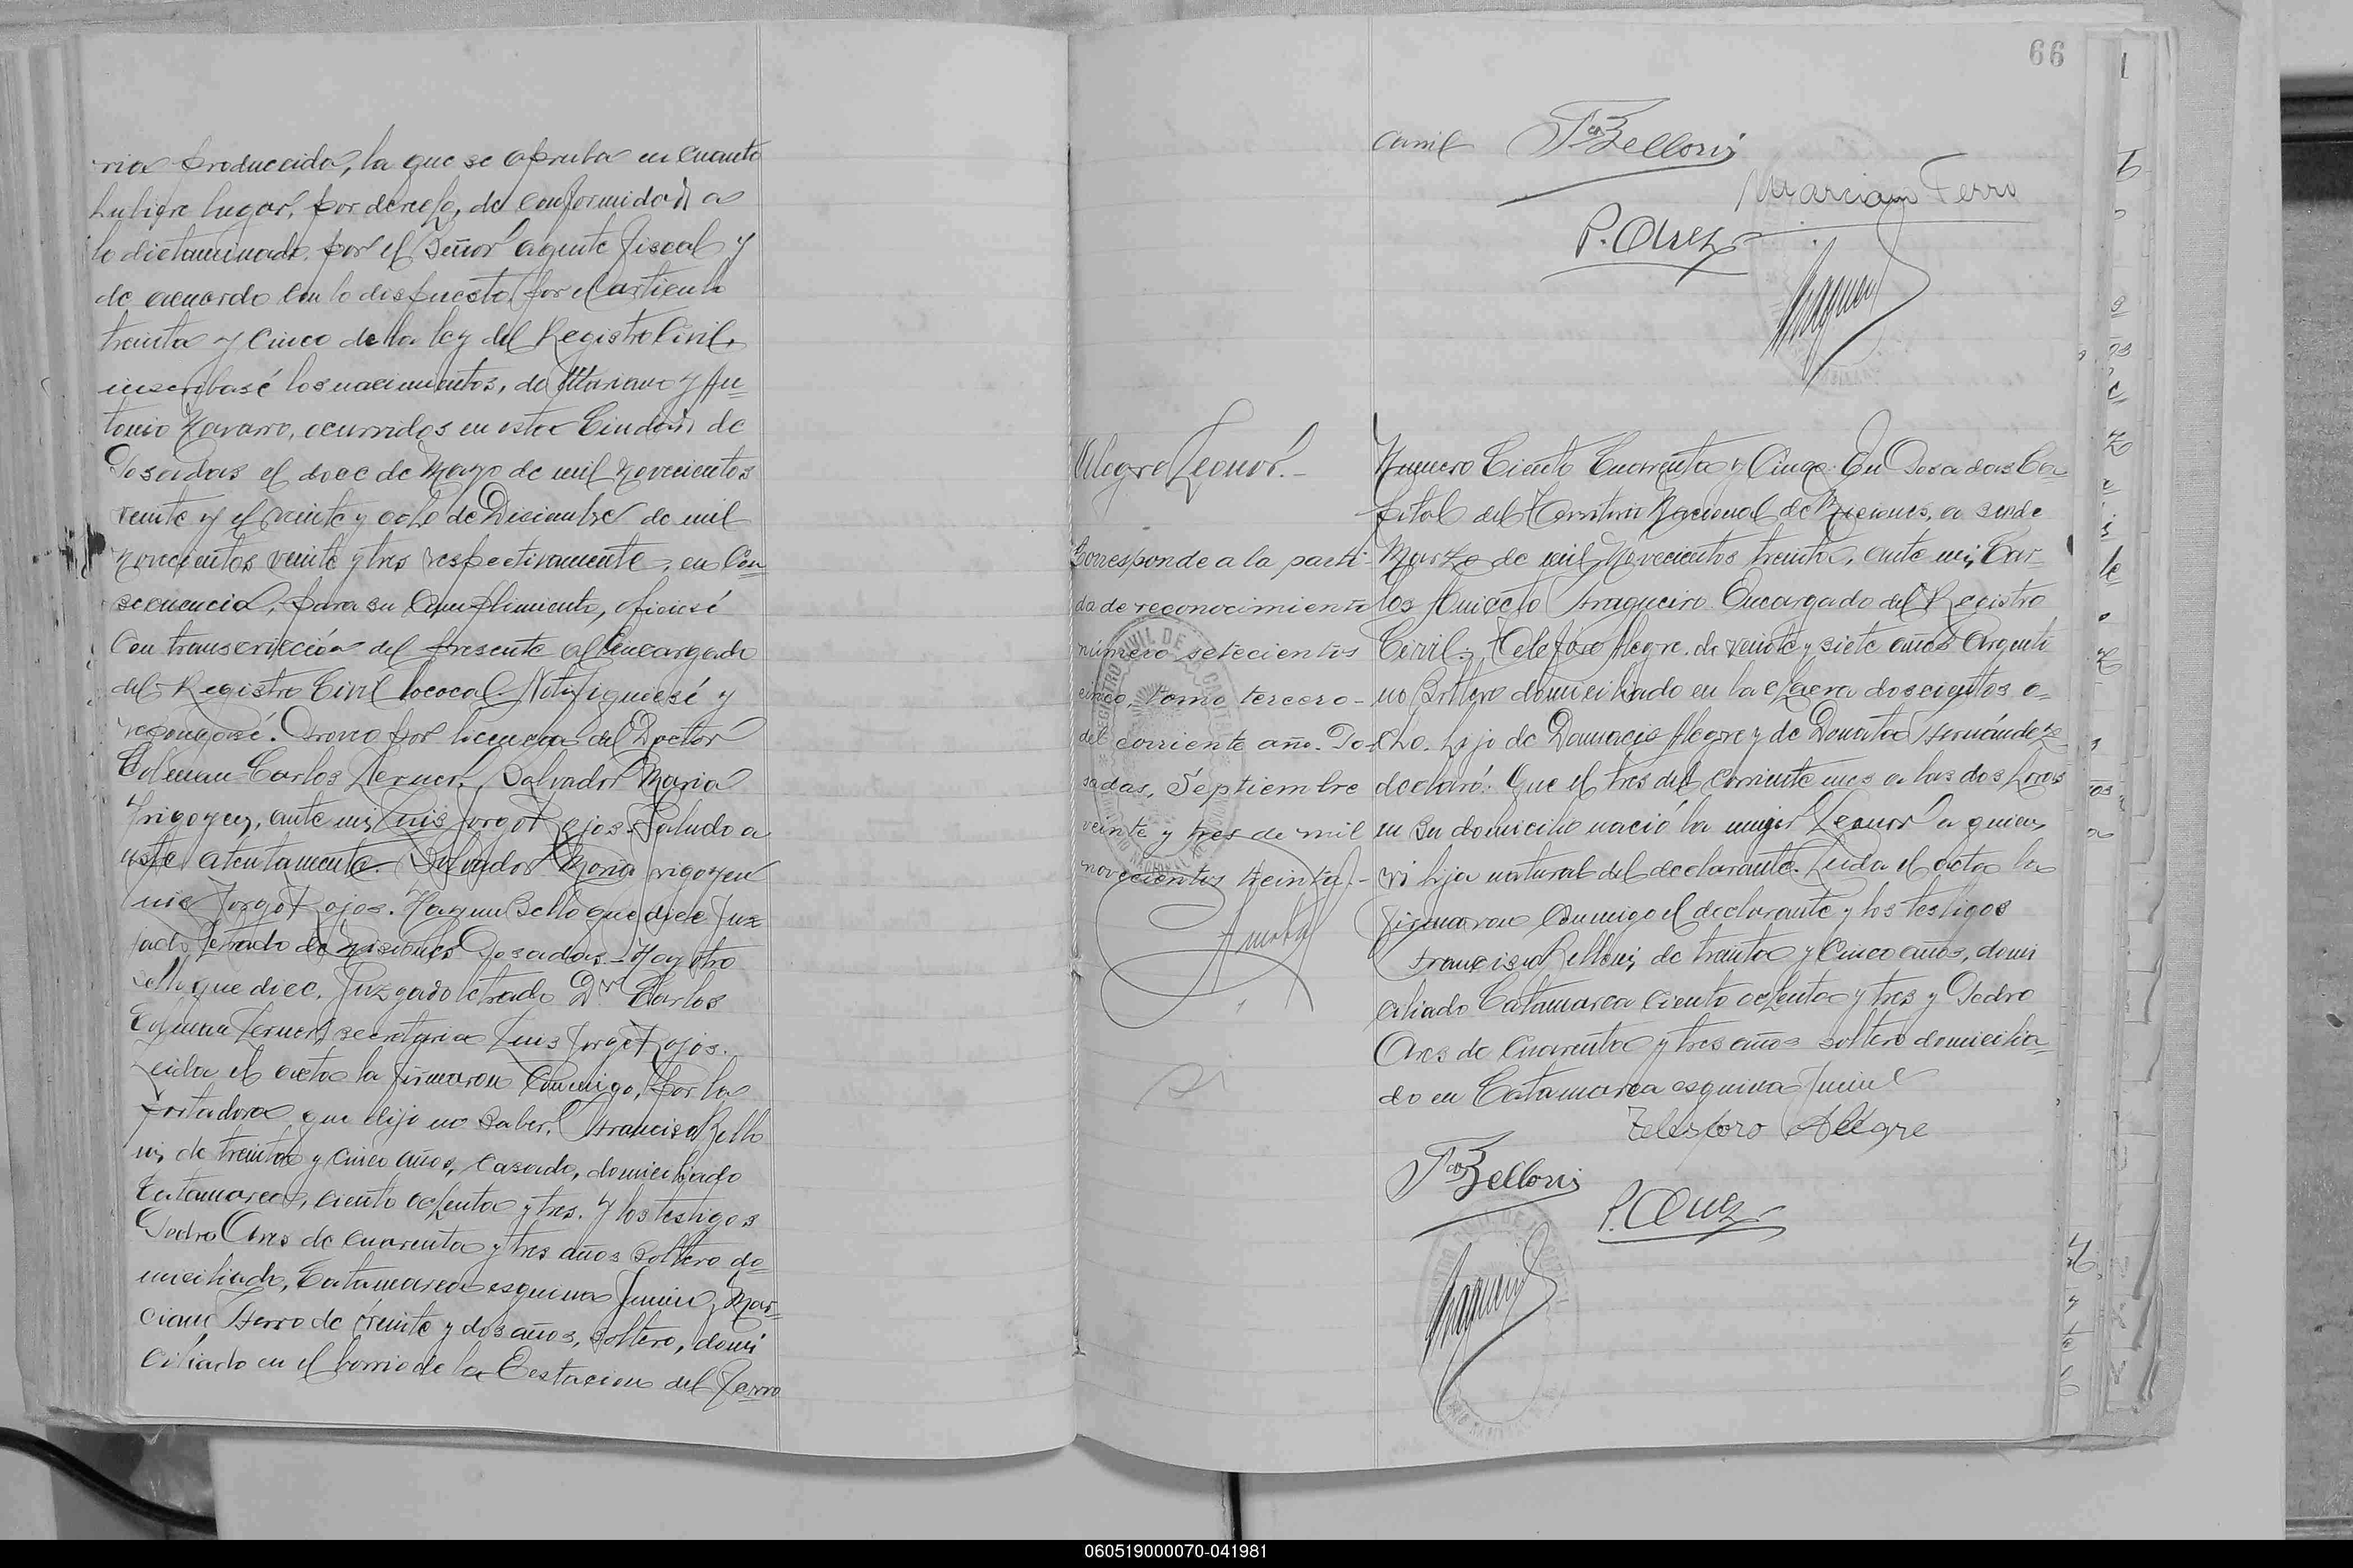 ria producida, la que se aprueba en cuanto
hubiere lugar, por derecho, de conformidad a
lo dictaminado por el Señor agente fiscal y
de acuerdo con lo dispuesto por el articulo
treinta y cinco de la ley del Registro Civil,
inscribasé los nacimientos, de Mariano y An-
tonio Navarro, ocurridos en esta Ciudad, de
Posadas el doce de Mayo de mil novecientos
veinte y el veinte y ocho de Diciembre de mil
novecientos veinte y tres respectivamente, en Con-
secuencia, para su Cumplimiento, oficiesé
Con transcripción del presente al Encargado
del Registro Civil lococal. Notifiquesé y
repongasé. Proveo por licencia del Doctor
Coleman Carlos Lerner. Salvador Maria
Irigoyen, ante mi, Luis Jorge Rojos. Saludo a
usted atentamente. Salvador Maria Irigoyen
Luis Jorge Rojos. Hay un Sello que dice Juz
gado Letrado de Misiones Posadas. Hay otro
sello que dice, Juzgado letrado Dr Carlos
Coleman Lerner, secretaria Luis Jorge Rojos.
Leida el acta la firmaron Conmigo, por la
portadora que dijo no saber, Francisco Bello
ni, de treinta y cinco años, casado, domiciliado
Catamarca, ciento ochenta y tres. Y los testigos
Pedro Ares de cuarenta y tres años soltero do-
miciliado, Catamarca esquina Junin, Mar-
ciano Ferro de treinta y dos años, soltero, domi
ciliado en el barrio de la Estacion del Ferro
66
carril
Fco Belloni
Marciano Ferro
P. Ares
Alegre Leonor.-
Corresponde a la parti-
da de reconocimiento
número setecientos
cinco, tomo tercero-
del corriente año. Po-
sadas, Septiembre
veinte y tres de mil
novecientos treinta.-
Numero Ciento Cuarenta y Cinco. En Posadas Ca-
pital del Territorio Nacional de Misiones, a
Marzo de mil Novecientos treinta, ante mi, Car-
los Aniceto Fragueiro Encargado del Registro
Civil; Telefóro Alegre, de veinte y siete años Argenti
no Soltero domiciliado en la chacra doscientos o-
cho. hijo de Damacio Alegre y de Donata Hernández
declaró: Que el tres del corriente mes a las dos horas
en su domicilio nació la mujer Leonor a quien
vi hija natural del declarante. Leida el acta la
firmaron Conmigo el declarante y los testigos
Francisco Belloni, de treinta y Cinco años, domi
ciliado Catamarca ciento ochenta y tres y Pedro
Ares de Cuarenta y tres años soltero domicilia-
do en Catamarca esquina Junin
Telesforo Allegre
Fco Belloni
P. Ares
060519000070-041981